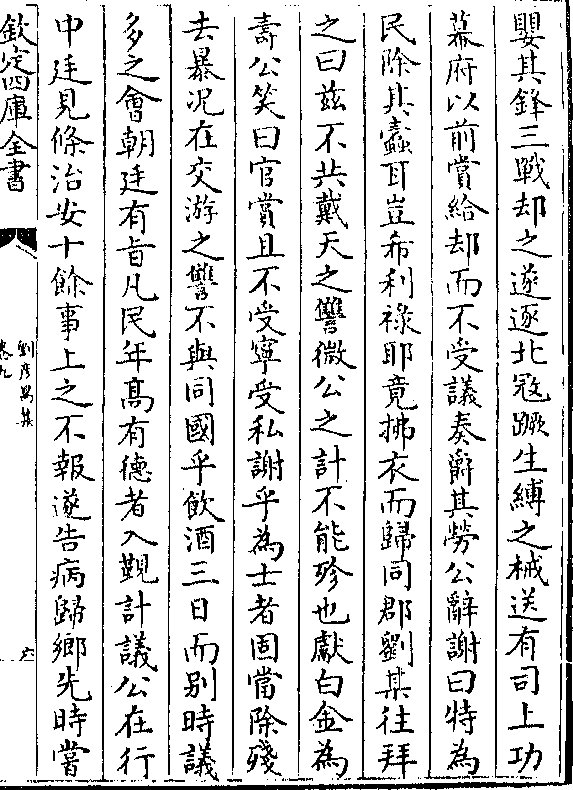 嬰其鋒三戰却之遂逐北冦蹶生縛之械送有司上功
幕府以前賞給却而不受議奏辭其勞公辭謝曰特為
民除其蠹耳豈希利祿耶竟拂衣而歸同郡劉某徃拜
之曰兹不共戴天之讐微公之計不能殄也獻白金為
壽公笑曰官賞且不受寧受私謝乎為士者固當除殘
去暴况在交游之讐不與同國乎飲酒三日而别時議
多之會朝廷有旨凡民年髙有德者入覲計議公在行
中廷見條治安十餘事上之不報遂告病歸鄉先時嘗
欽定四庫全書
劉彦昺集
卷九
六